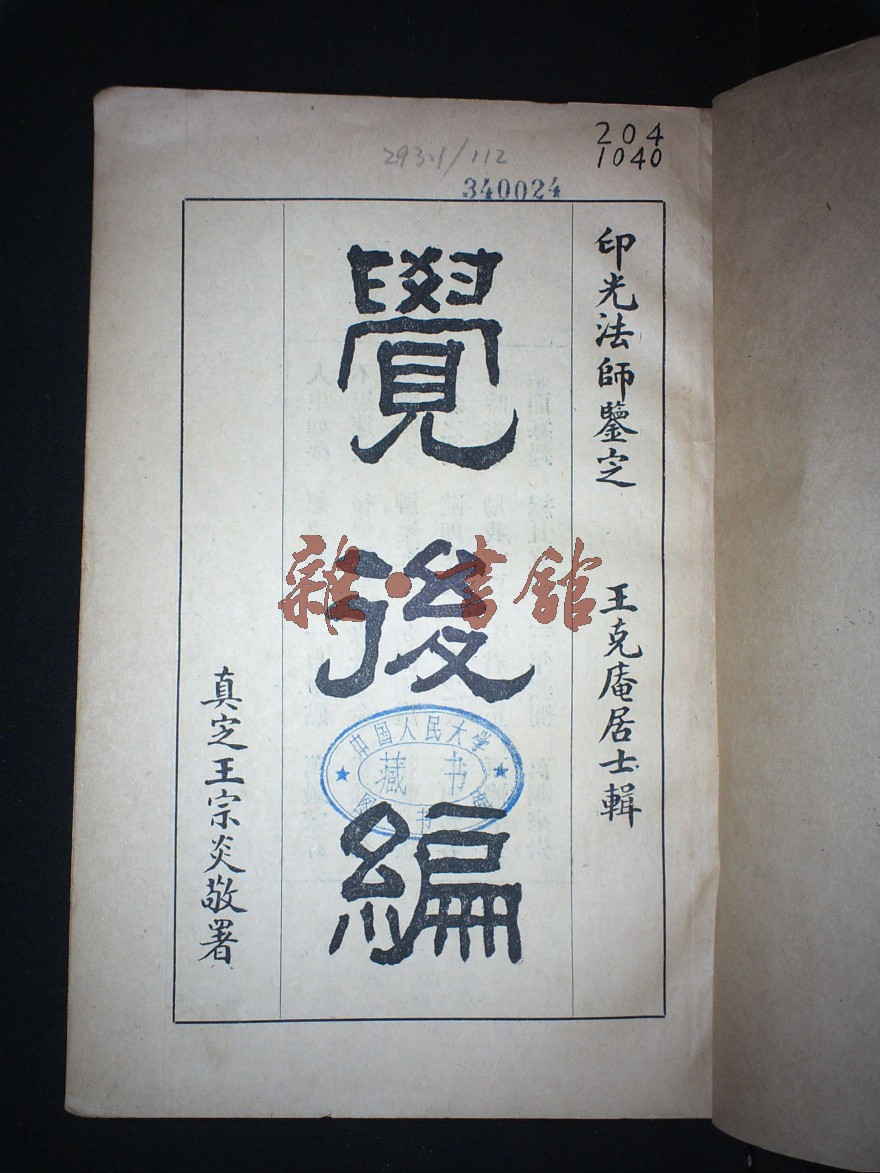 204
1040
293.1/112
340024
印光法師鑒定
王克庵居士輯
覺後編
真定王宗炎敬署
雜·書館
中国人民大学
藏书
图书馆